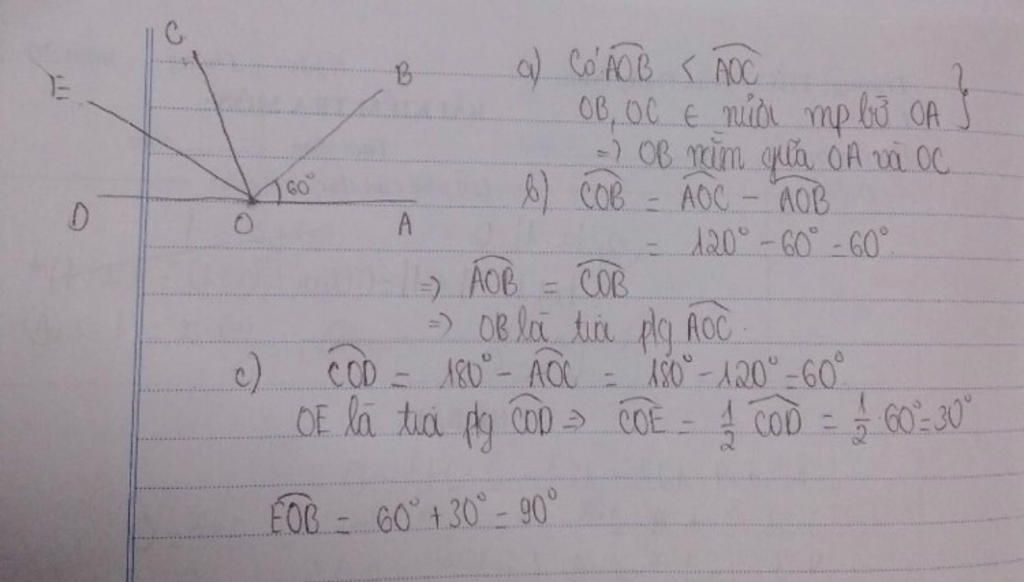 C
B
E
60°
D
O
A
a) Có AOB < AOC
OB, OC ∈ nửa mp bờ OA }
=> OB nằm giữa OA và OC
b) COB = AOC - AOB
= 120° - 60° = 60°.
=> AOB = COB
=> OB là tia p/g AOC.
c) COD = 180° - AOC = 180° - 120° = 60°
OE là tia p/g COD => COE = 1/2 COD = 1/2 · 60° = 30°
EOB = 60° + 30° = 90°